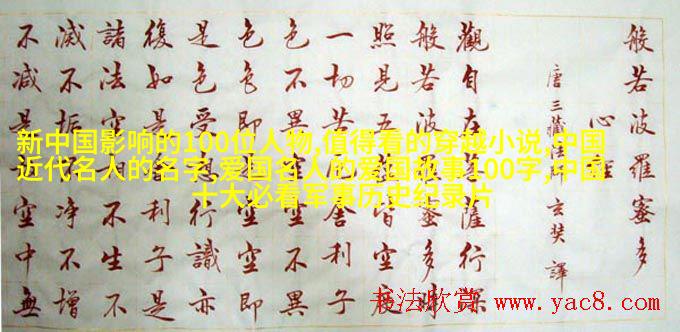 般若波羅蜜多
心經
唐三藏法師玄奘譯
觀自在菩薩行深
般若波羅蜜多時
照見五蘊皆空度
一切苦厄舍利子
色不異空空不異
色色即是空空即
是色受想行識亦
復如是舍利子是
諸法空相不生不
滅不垢不淨不增
不減是故空中無
新中国影响的100位人物,值得看的穿越小说,中国
近代名人的名字,爱国名人的爱国故事100字,中国
十大必看军事历史纪录片
书法欣赏 www.yac8.com